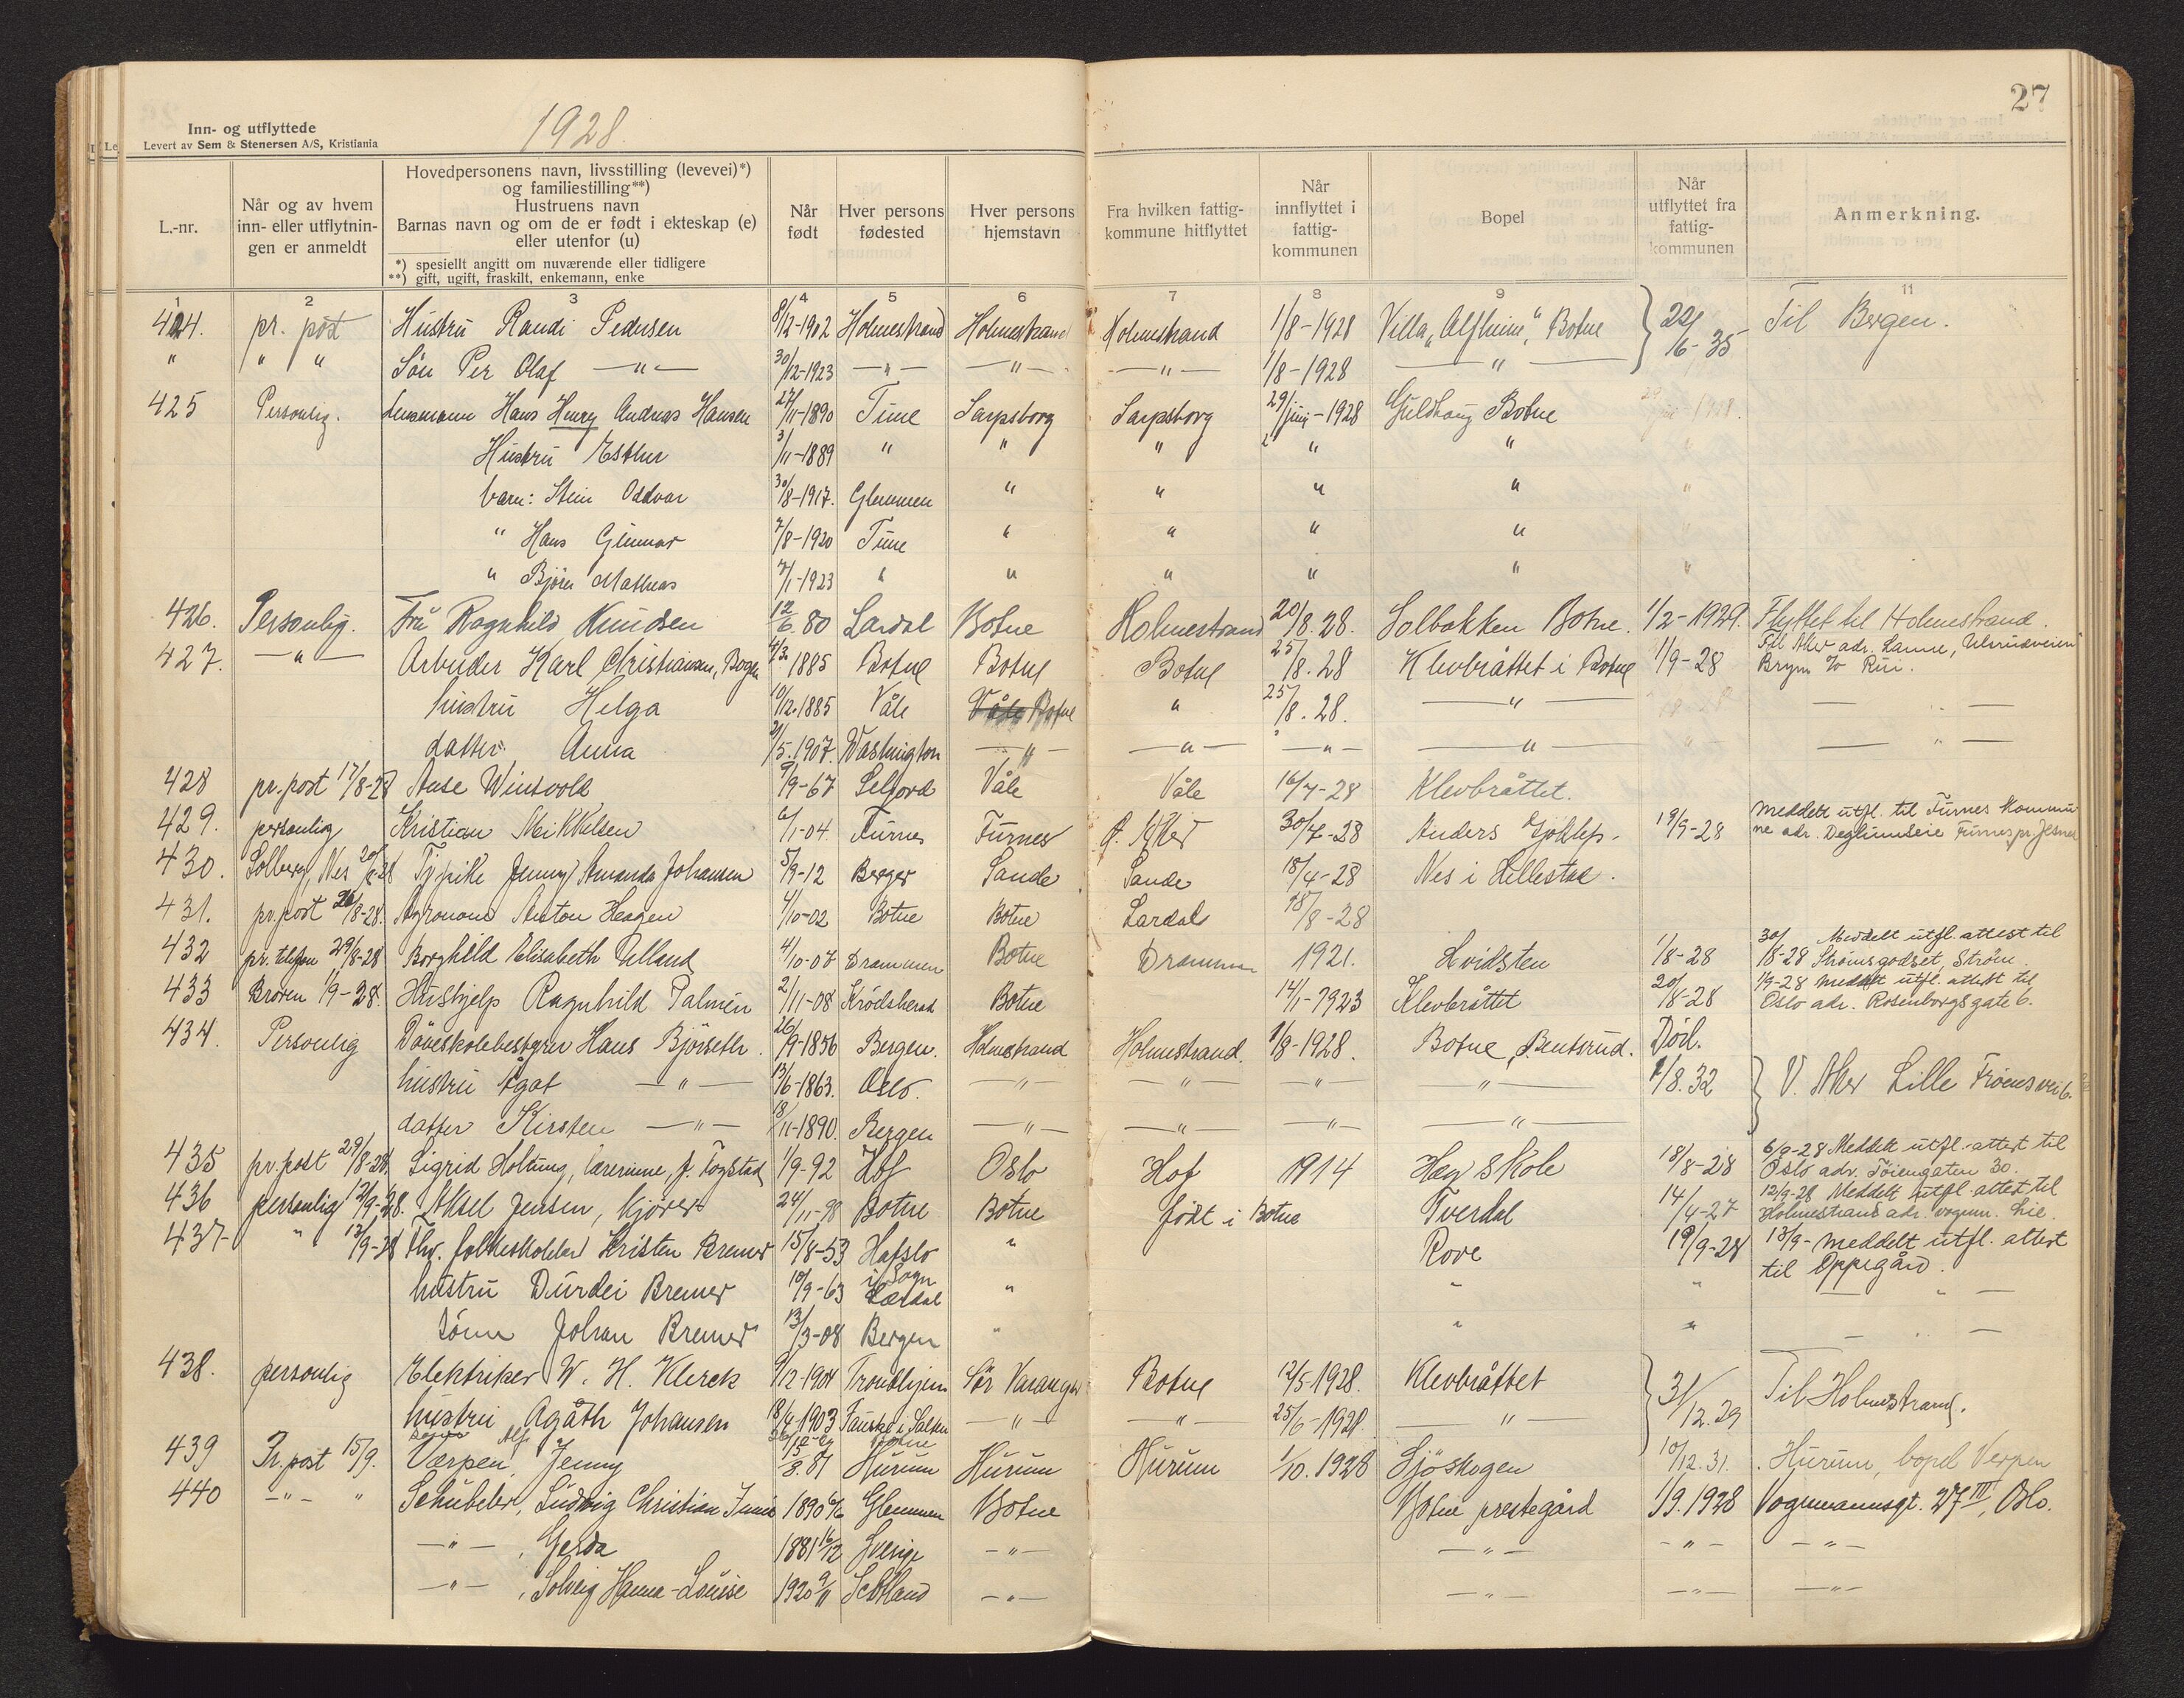 27
Inn- og utflyttede
Levert av Sem & Stenersen A/S, Kristiania
1928.
L.-nr.
Når og av hvem
inn- eller utflytnin-
gen er anmeldt
Hovedpersonens navn, livsstilling (levevei)*)
og familiestilling**)
Hustruens navn
Barnas navn og om de er født i ekteskap (e)
eller utenfor (u)
*) spesiellt angitt om nuværende eller tidligere
**) gift, ugift, fraskilt, enkemann, enke
Når
født
Hver persons
fødested
Hver persons
hjemstavn
Fra hvilken fattig-
kommune hitflyttet
Når
innflyttet i
fattig-
kommunen
Bopel
Når
utflyttet fra
fattig-
kommunen
Anmerkning.
1 2 3 4 5 6 7 8 9 11
424. pr. post Hustru Randi Pedersen 8/12-1902 Holmestrand Holmestrand Holmestrand 1/8-1928 Villa „Alfheim", Botne 22/6-35 Til Bergen.
" " " Sön Per Olaf —"— 30/12-1923 —"— —"— —"— 1/8-1928 —"—
425 Personlig. Lensmann Hans Henry Andreas Hansen 27/11-1890 Tune Sarpsborg Sarpsborg 29/juni-1928 Guldhaug Botne
Hustru Esther 3/11-1889 " " " " "
barn: Stein Oddvar 30/8-1917. Glemmen " " " " "
" Hans Gunnar 7/8-1920 Tune " " " " "
" Björn Mathias 7/1-1923 " " " " " "
426. Personlig. Fru Ragnhild Knudsen 12/6.80 Lardal Botne Holmestrand 20/8.28. Solbakken Botne. 1/2-1929. Flyttet til Holmestrand.
427. —"— Arbeider Karl Christiansen, Bogen 4/3 1885 Botne Botne Botne 25/8.28 Klevbråttet i Botne 1/9-28 Til Aker adr. Lanne, Ulsrudveien
Bryn
hustru Helga 10/12.1885 Våle Våle Botne " 25/8.28. —"— — " —
datter Anna 21/5.1907. Washington —"— —"— —"— —"— " — " —
428 pr. post 17/8-28 Anse Winsvold 9/9-67 Seljord Våle Våle 16/7-28 Klevbråttet.
429. personlig Kristian Mikkelsen 6/1-04. Furnes Furnes Ø. Aker 30/7-28 Anders Gjöklep. 19/9-28 Meddelt utfl. til Furnes kommu
ne adr. Deglumseie Furnes pr. Jesnes
430. Solberg, Nes 20/8-28 Typike Jenny Amanda Johansen 5/9-12 Berger Sande Sande 18/4-28 Nes i Hillestad.
431. pr. post 26/8-28. Agronom Anton Haagen 4/10-02 Botne Botne Lardal 18/8-28
432 pr. telefon 29/8-28 Borghild Elisabeth Ulland 4/10-07 Drammen Botne Drammen 1921. Hvidsten 1/8-28 30/8-28 Meddelt utfl. attest til
Strömsgodset, Ström.
433 Broren 1/9-28. Hushjelp Ragnhild Palmén 2/11-08 Krödsherad Botne 14/1-1923 Klevbråttet 20/8-28 1/9-28 meddelt utfl. attest til
Oslo adr. Rosenborgsgate 6.
434. Personlig Döveskolebestyrer Hans Björseth. 26/9-1856 Bergen. Holmestrand Holmestrand. 1/8-1928. Botne, Bentsrud. Död.
hustru Ågot —"— 13/6-1863. Oslo. —"— —"— —"— —"— 1/8.32 V. Aker Lille Fröensvei 6.
datter Kirsten —"— 18/11-1890. Bergen —"— —"— —"— —"—
435 pr. post 29/8-28. Sigrid Holtung, lærerinne, f. Fogstad 1/9-92 Hof Oslo Hof 1914 Hag skole 18/8-28 6/9-28 Meddelt utfl.-attest til
Oslo adr. Töiengaten 30.
436 personlig 12/9-28. Aksel Jensen, kjörer 24/11-98 Botne Botne födt i Botne Tverdal 14/4-27 12/9-28 Meddelt utfl. attest til
Holmestrand adr. vognm. Lie.
437- " 13/9-28 Fhv. folkeskolelær. Kristen Bremer 15/8-53 Hafslo
i Sogn " Rove 19/9-28 13/9- meddelt utfl. attest
til Oppegård.
hustru Durdei Bremer 10/9-63 Lærdal " " " — " —
sönn Johan Bremer 13/3-08 Bergen " " " — " —
438. personlig Elektriker W. H. Klerck 9/12-1904 Trondhjem Sör Varanger Botne 12/5-1928. Klevbråttet 31/12.29 Til Holmestrand.
hustru Agåth Johansen 18/4 1903 Fauske i Salten —"— —"— 25/6-1928. —"—
439 Pr. post 15/9. Værpen, Jenny 5/8.81 Hurum Hurum Hurum 1/10.1928 Sjöskogen 10/12.31. Hurum, bopel Verpen
440 —"— " Schübeler, Ludvig Christian Junior 1890 6/6 Glemmen Botne Botne prestegård 1/9.1928 Vogtmannsgt. 27 III, Oslo.
—"—, Gerda 1881 16/12 Sverige —"— —"— —"— —"—
—"—, Solveig Hanna-Louise 1920 9/11 Scotland —"— —"— —"— —"—